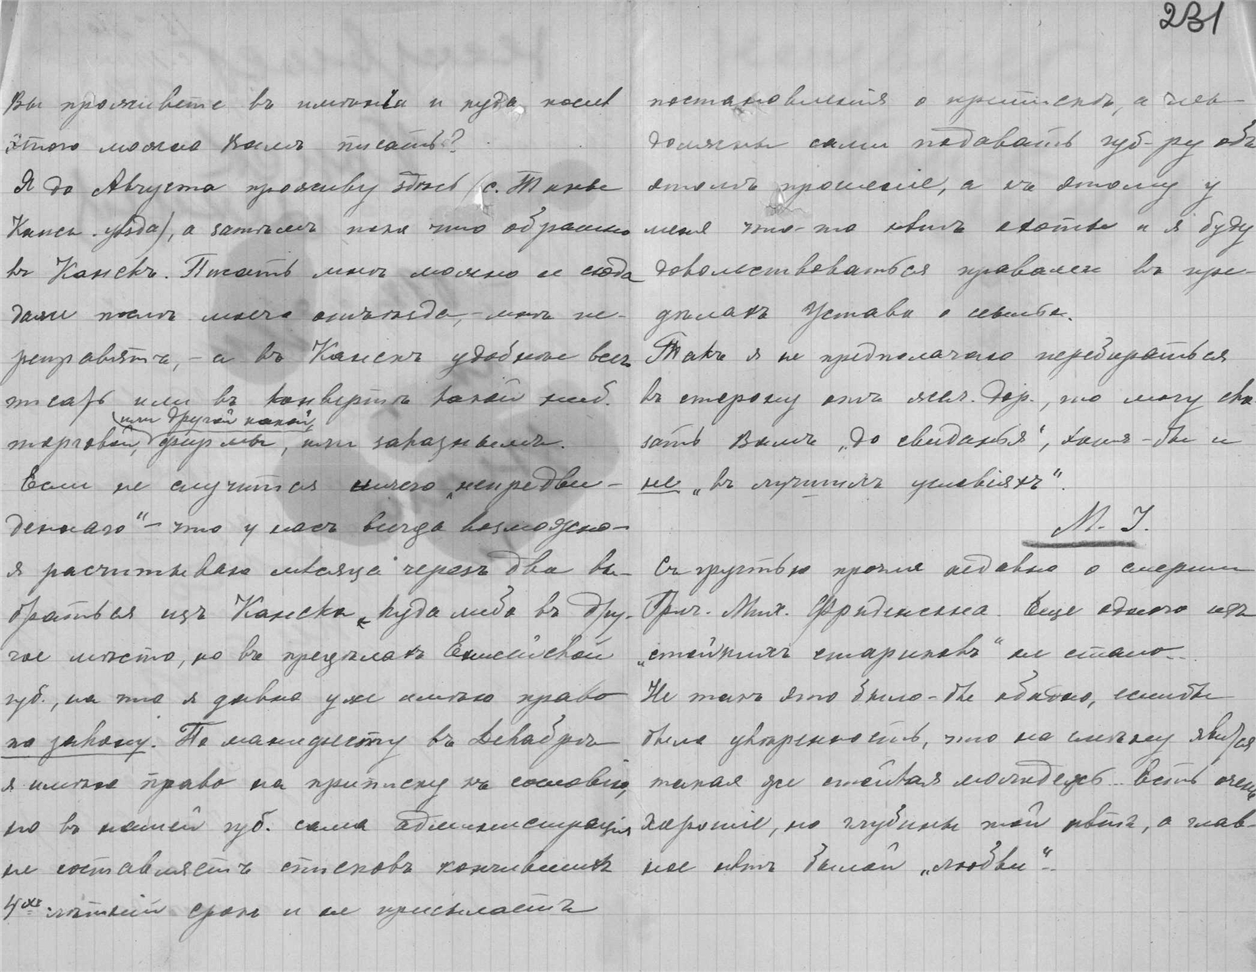 231
Вы проживете въ имѣніи и куда после
этого можно Вамъ писать?
Я до Августа проживу здѣсь (с. Тины
Канск. уѣзда), а затѣмъ пока что обратно
въ Канскъ. Писать мнѣ можно и сюда
даже послѣ моего отъѣзда, – мнѣ пе-
реправятъ, – а въ Канскъ удобнѣе всего
писать или въ конвертѣ какой ниб.
(или другой какой)
торговой фирмы, или заказнымъ.
Если не случится ничего „непредви-
деннаго" – что у насъ всегда возможно –
я расчитываю мѣсяца черезъ два вы-
браться изъ Канска куда либо въ дру-
гое мѣсто, но въ предѣлахъ Енисейской
губ., на что я давно уже имѣю право
по закону. По манифесту въ Декабрѣ
я имѣю право на приписку къ сословію,
но въ нашей губ. сама администрація
не составляетъ списковъ кончившихъ
4хъ лѣтній срокъ и не присылаетъ
постановленія о припискѣ, а мы
должны сами подавать губ-ру объ
этомъ прошеніе, а къ этому у
меня что-то нѣтъ охоты и я буду
довольствоваться правами въ пре-
дѣлахъ Устава о ссыльн.
Такъ я не предполагаю перебираться
въ сторону отъ жел. дор., то могу ска
зать Вамъ „до свиданья", хотя-бы и
не „въ лучшихъ условіяхъ".
М. І.
Съ грустью прочла недавно о смерти
Григ. Мих. Фриденсона. Еще одного изъ
„стойкихъ стариковъ" не стало..
Не такъ это было-бы обидно, если бы
была увѣренность, что на смѣну явится
такая же стойкая молодежь. Есть очень
хорошіе, но глубины той нѣтъ, а глав
ное нѣтъ былой „любви".